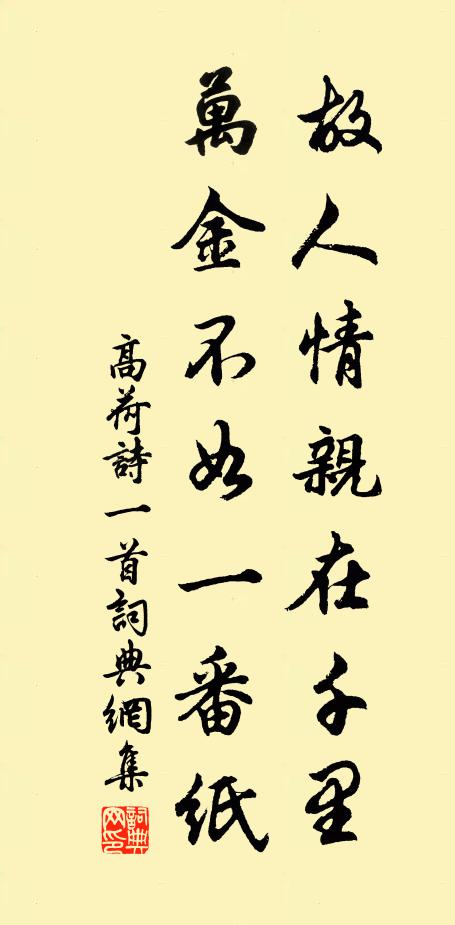 故人情親在千里
萬金不如一番紙
高荷詩一首詞典網集
詞典網印